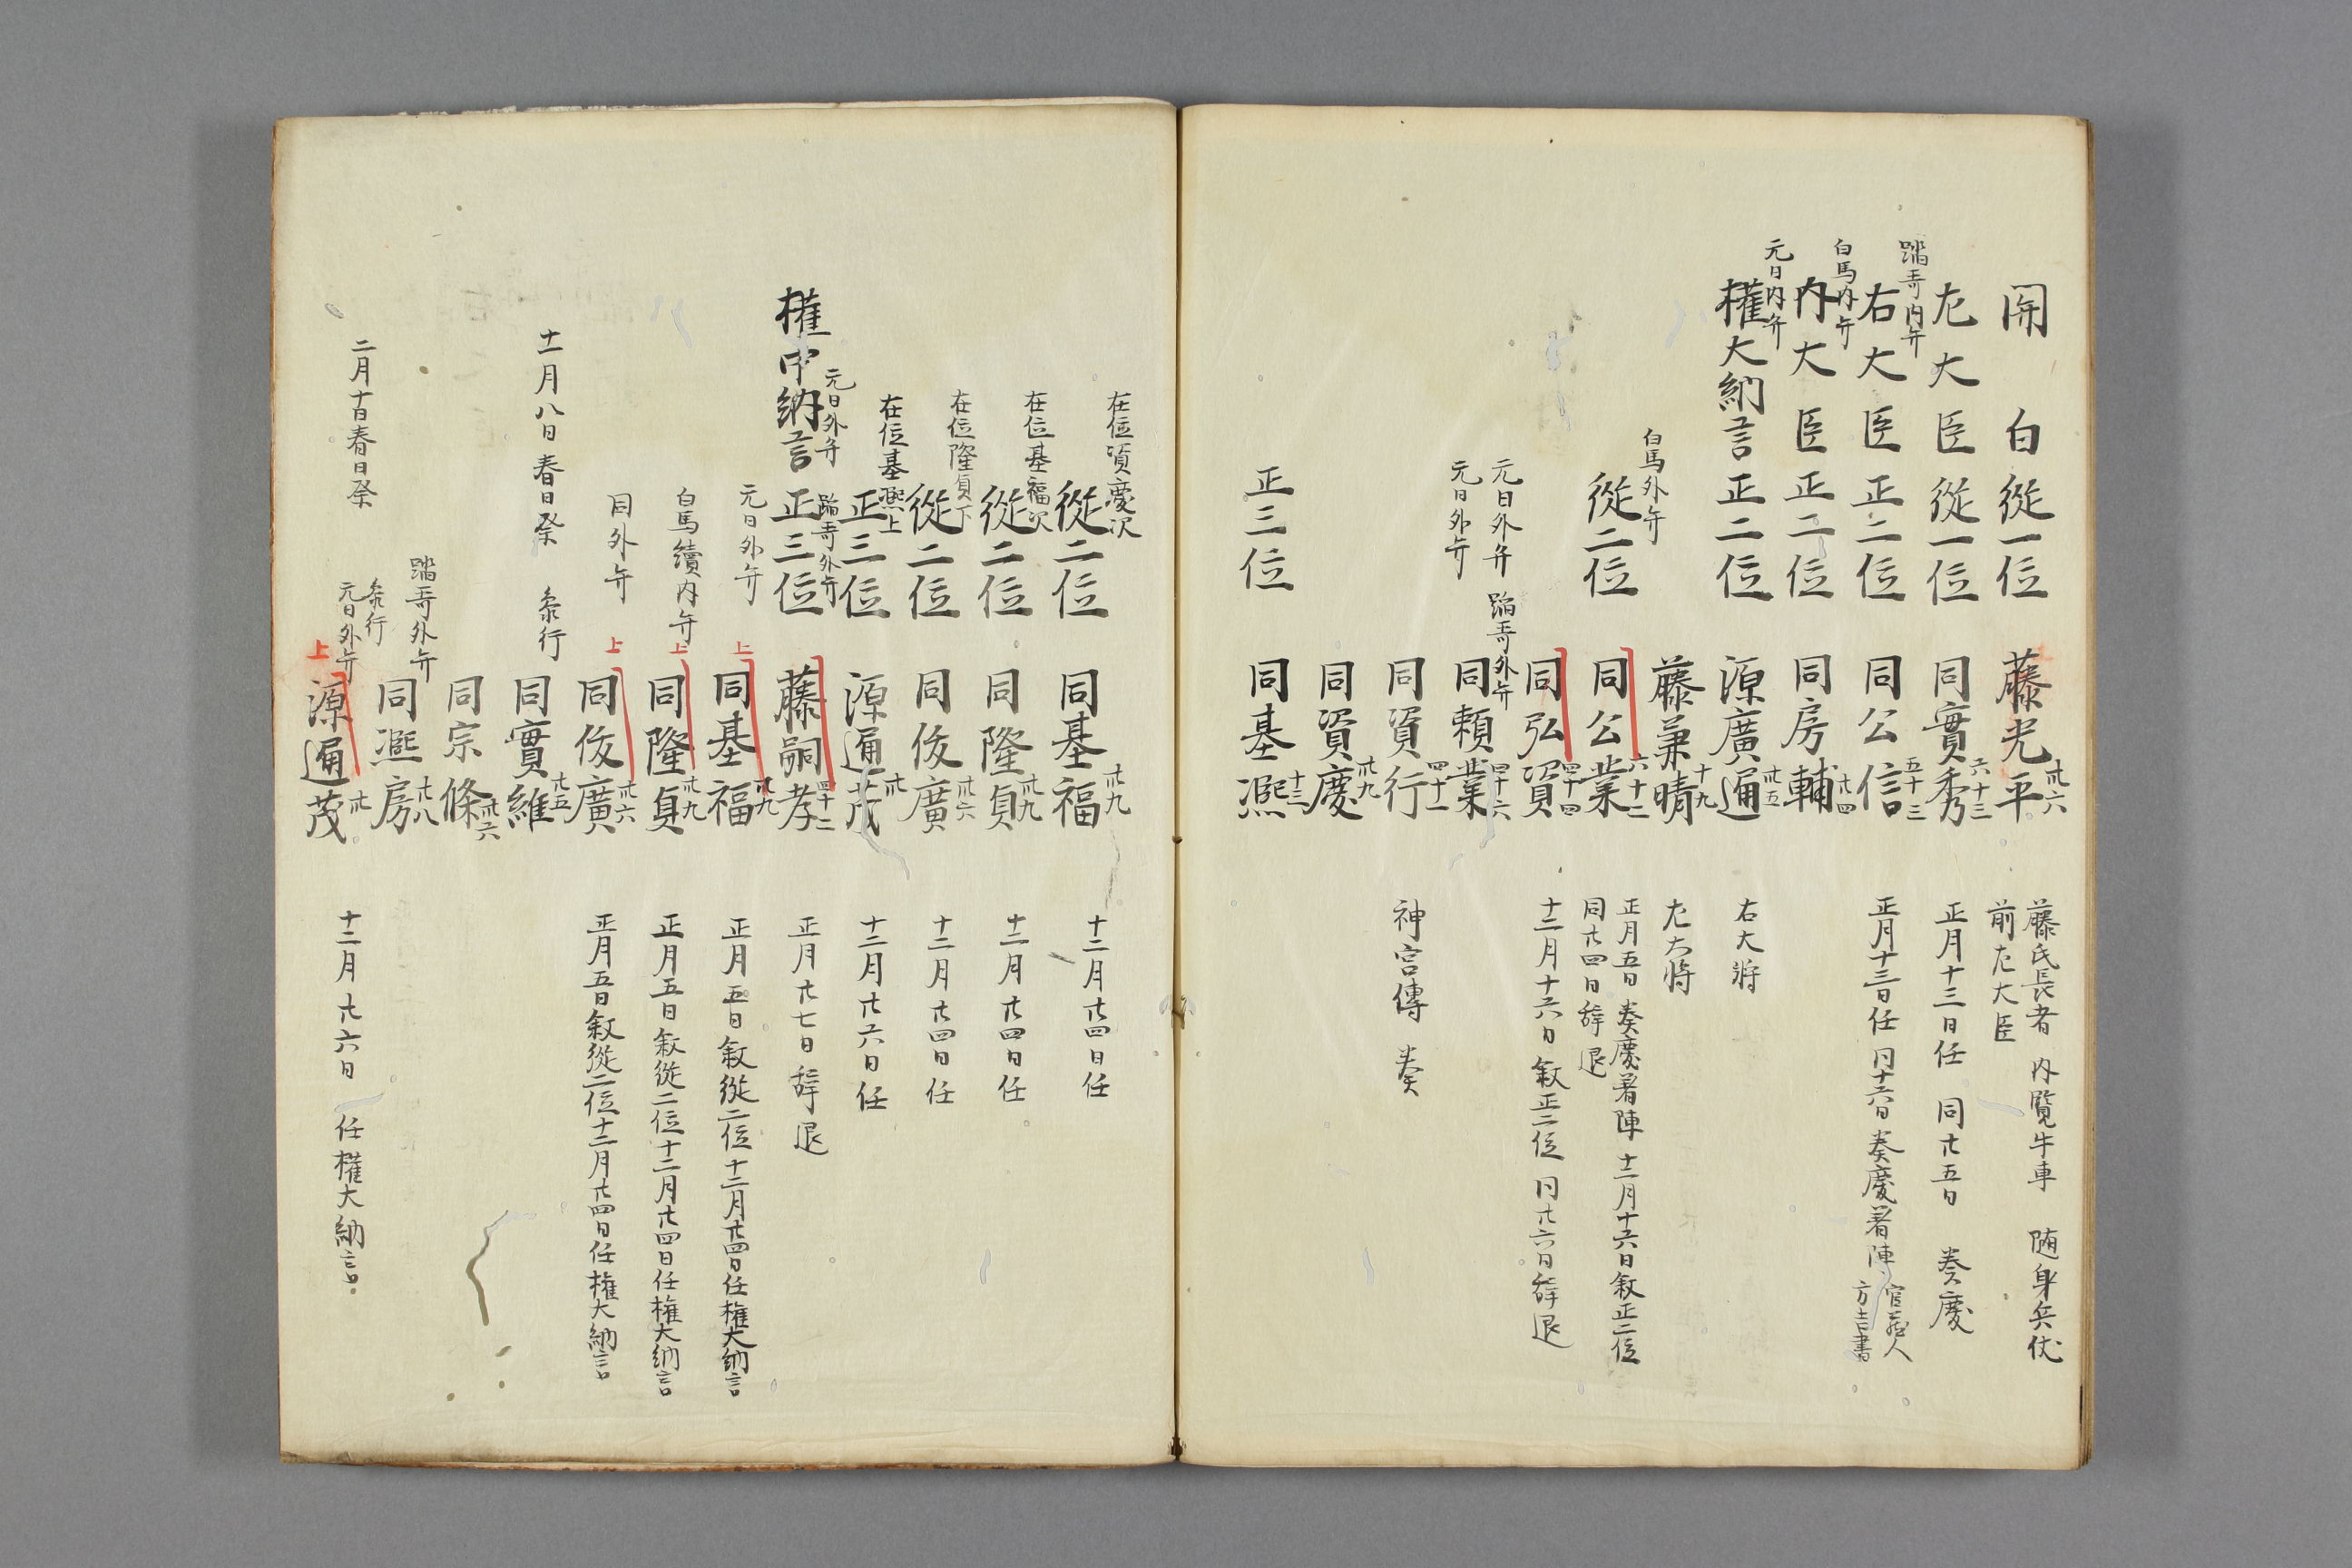 関白從一位 藤光平 卅六 藤氏長者 内覧牛車 随身兵仗
前左大臣
左大臣從一位 同實秀 六十三 正月十三日任 同廿五日 奏慶
踏哥内弁
右大臣正二位 同公信 五十三 正月十三日任 同十六日 奏慶著陣 官蔵人方吉書
白馬内弁
内大臣正二位 同房輔 廿四
元日内弁
權大納言正二位 源廣通 卅五 右大将
藤兼晴 十九 左大将
白馬外弁
從二位 同公業 六十二 正月五日奏慶著陣 十二月十六日叙正二位
同廿四日辞退
同弘資 四十四 十二月十六日叙正二位 同廿六日辞退
元日外弁 踏哥外弁
同頼業 四十六
元日外弁
同資行 四十一 神宮傳奏
同資慶 卅九
正三位 同基凞 十三
在位資慶次
從二位 同基福 卅九 十二月廿四日任
在位基福次
從二位 同隆貞 卅九 十二月廿四日任
在位隆貞下
從二位 同俊廣 卅六 十二月廿四日任
在位基凞上
正三位 源通茂 卅 十二月廿六日任
元日外弁 踏哥外弁
權中納言 正三位 藤嗣孝 四十二 正月廿七日辞退
元日外弁
上 同基福 卅九 正月五日叙從二位 十二月廿四日任權大納言
白馬續内弁
上 同隆貞 卅九 正月五日叙從二位 十二月廿四日任權大納言
同外弁
上 同俊廣 卅六 正月五日叙從二位 十二月廿四日任權大納言
十一月八日春日祭 参行
同實維 廿五
同宗條 卅六
踏哥外弁
同凞房 廿八
二月十日春日祭 参行
元日外弁
上 源通茂 卅 十二月廿六日 任權大納言